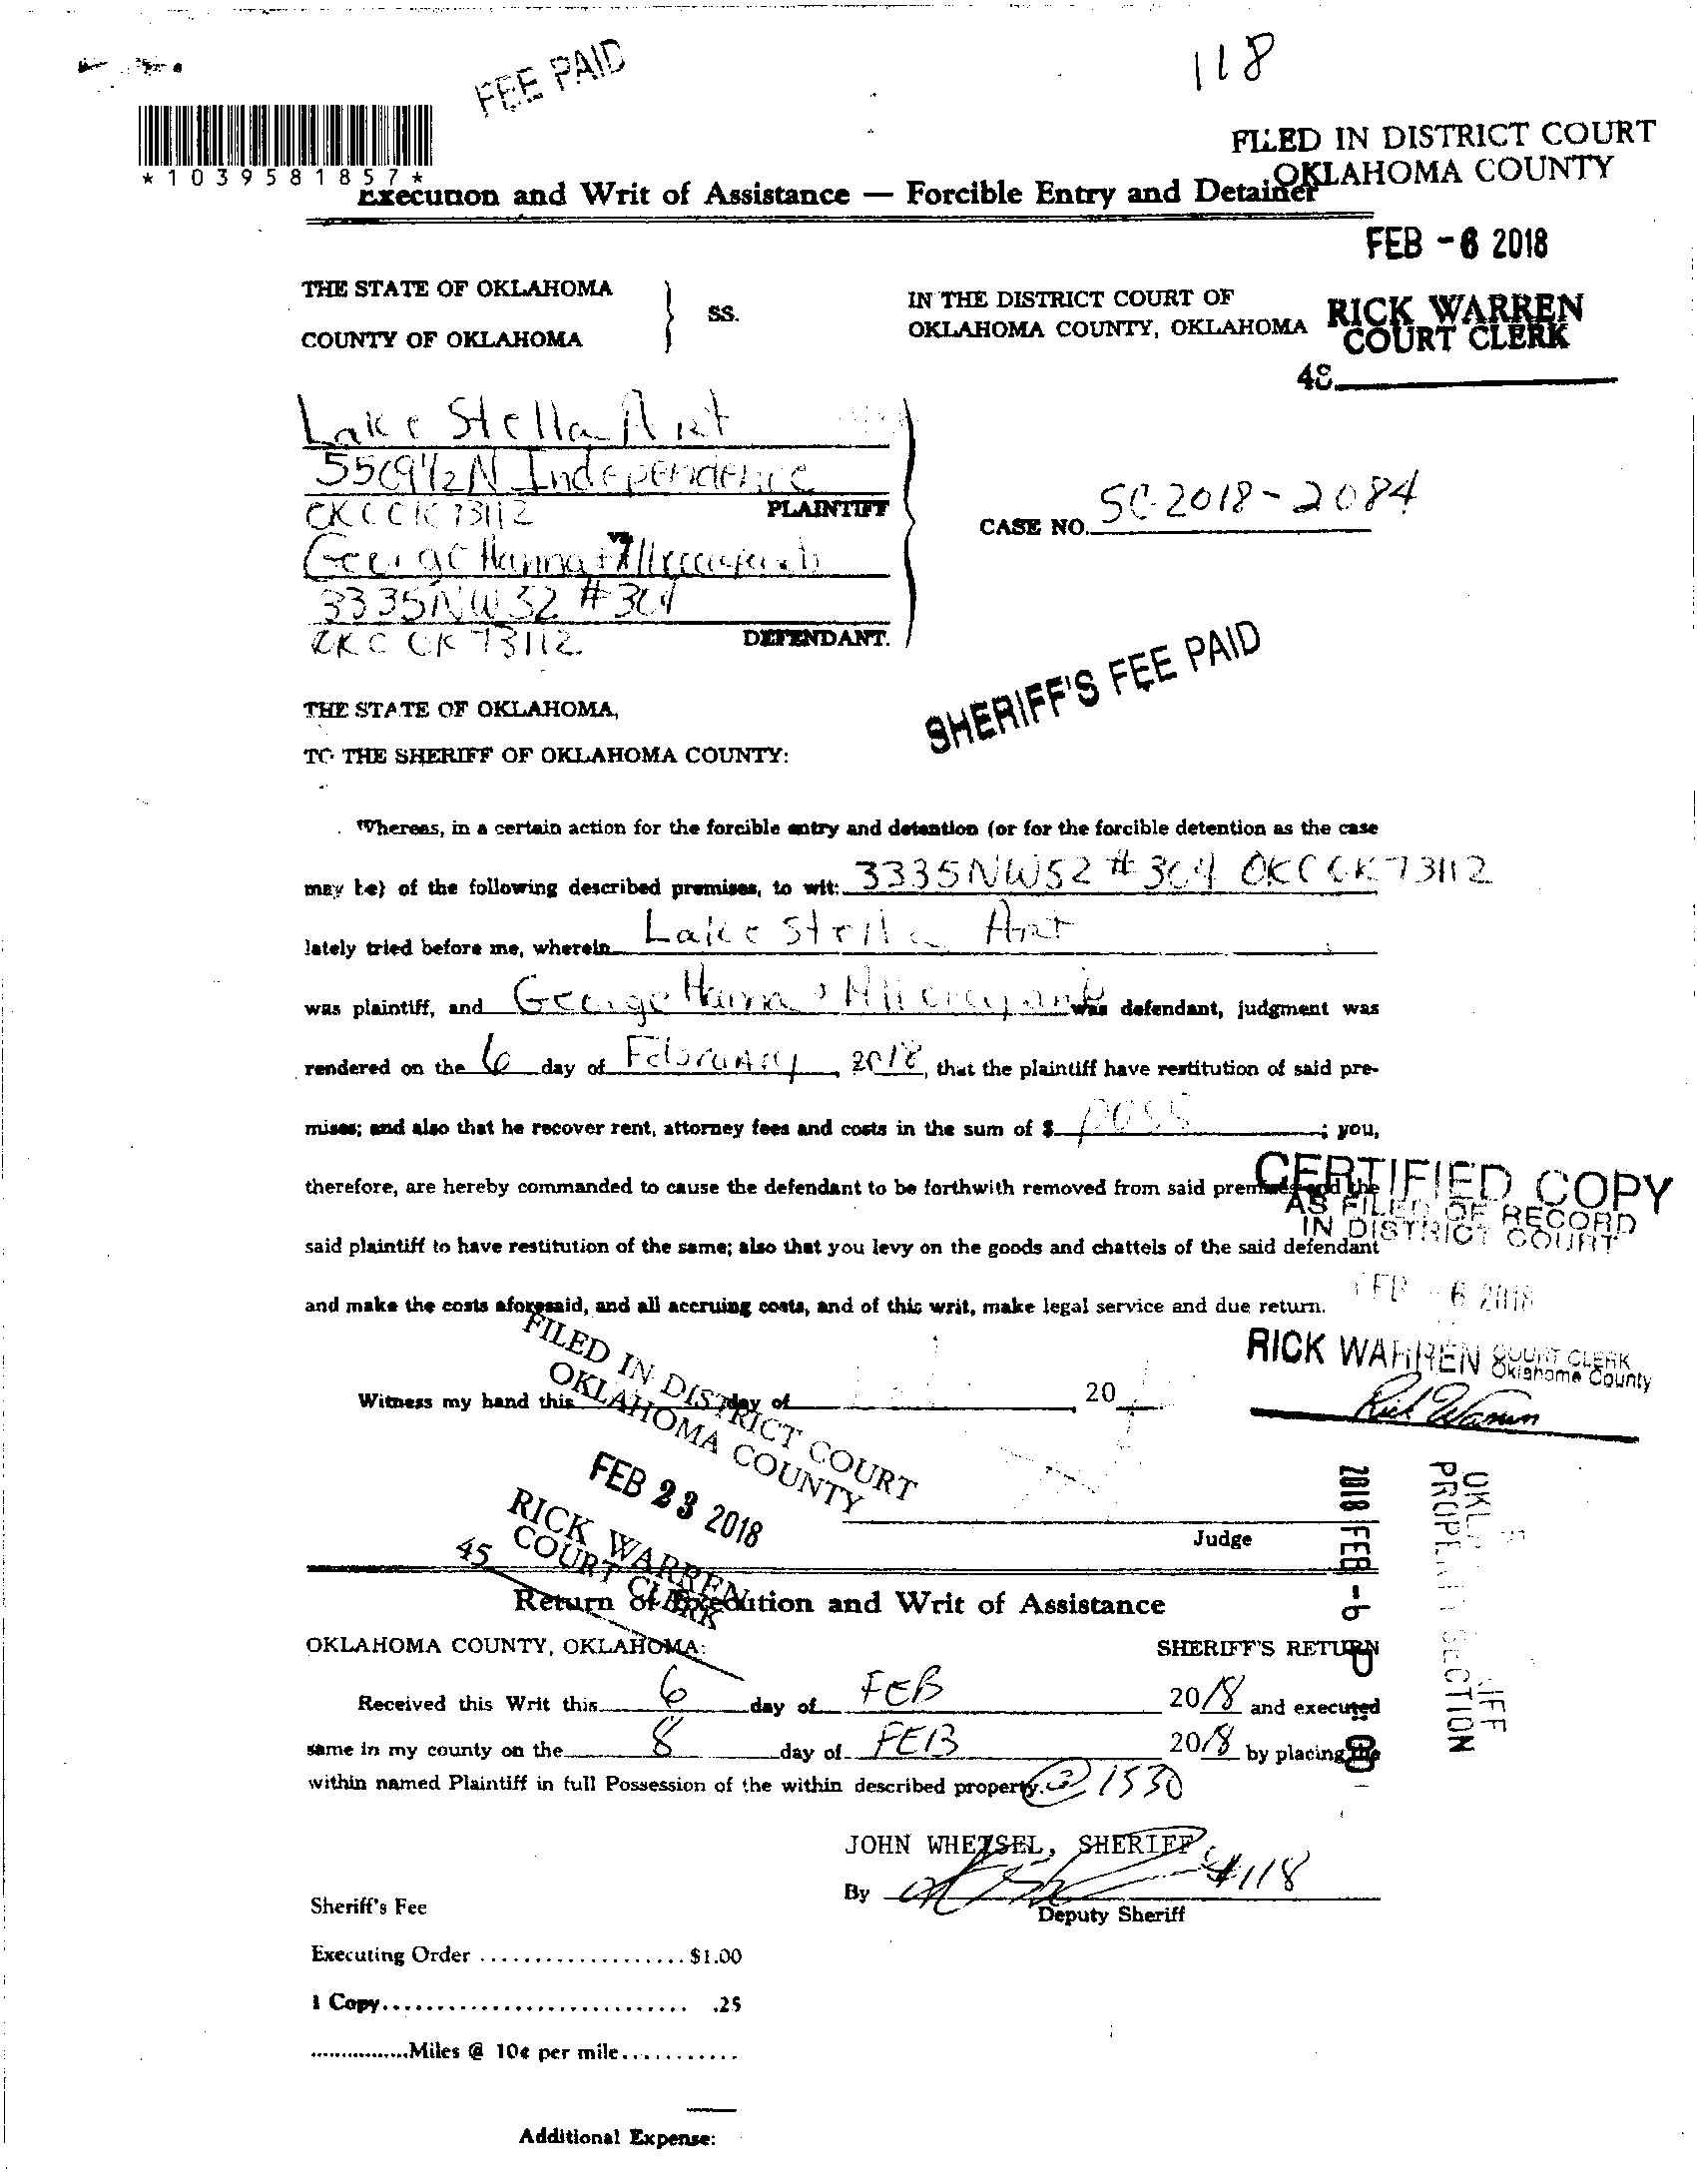 118
FEE PAID
FILED IN DISTRICT COURT
OKLAHOMA COUNTY
*1039581857*
Execution and Writ of Assistance — Forcible Entry and Detainer
FEB -6 2018
THE STATE OF OKLAHOMA
COUNTY OF OKLAHOMA
SS.
IN THE DISTRICT COURT OF
OKLAHOMA COUNTY, OKLAHOMA
RICK WARREN
COURT CLERK
48
Lake Stella Apt
5509 1/2 N Independence
OKC OK 73112
PLAINTIFF
vs
George Hanna + All occupants
3335 NW 52 #304
OKC OK 73112
DEFENDANT.
CASE NO. SC-2018-2084
SHERIFF'S FEE PAID
THE STATE OF OKLAHOMA,
TO THE SHERIFF OF OKLAHOMA COUNTY:
Whereas, in a certain action for the forcible entry and detention (or for the forcible detention as the case
may be) of the following described premises, to wit: 3335 NW 52 #304 OKC OK 73112
lately tried before me, wherein Lake Stella Apt
was plaintiff, and George Hanna + All occupants was defendant, judgment was
rendered on the 6 day of February, 2018, that the plaintiff have restitution of said pre-
mises; and also that he recover rent, attorney fees and costs in the sum of $ poss ; you,
therefore, are hereby commanded to cause the defendant to be forthwith removed from said premises and the
said plaintiff to have restitution of the same; also that you levy on the goods and chattels of the said defendant
and make the costs aforesaid, and all accruing costs, and of this writ, make legal service and due return.
CERTIFIED COPY
AS FILED OF RECORD
IN DISTRICT COURT
FEB -6 2018
RICK WARREN COURT CLERK
Oklahoma County
Rick Warren
Witness my hand this day of , 20
FILED IN DISTRICT COURT
OKLAHOMA COUNTY
FEB 23 2018
RICK WARREN
COURT CLERK
45
Judge
2018 FEB -6 P
PROPERTY SECTION
Return of Execution and Writ of Assistance
OKLAHOMA COUNTY, OKLAHOMA:
SHERIFF'S RETURN
Received this Writ this 6 day of FEB 2018 and executed
same in my county on the 8 day of FEB 2018 by placing the
within named Plaintiff in full Possession of the within described property. @ 1530
JOHN WHETSEL, SHERIFF
By #118
Deputy Sheriff
Sheriff's Fee
Executing Order ................... $1.00
1 Copy............................ .25
................Miles @ 10¢ per mile...........
Additional Expense: